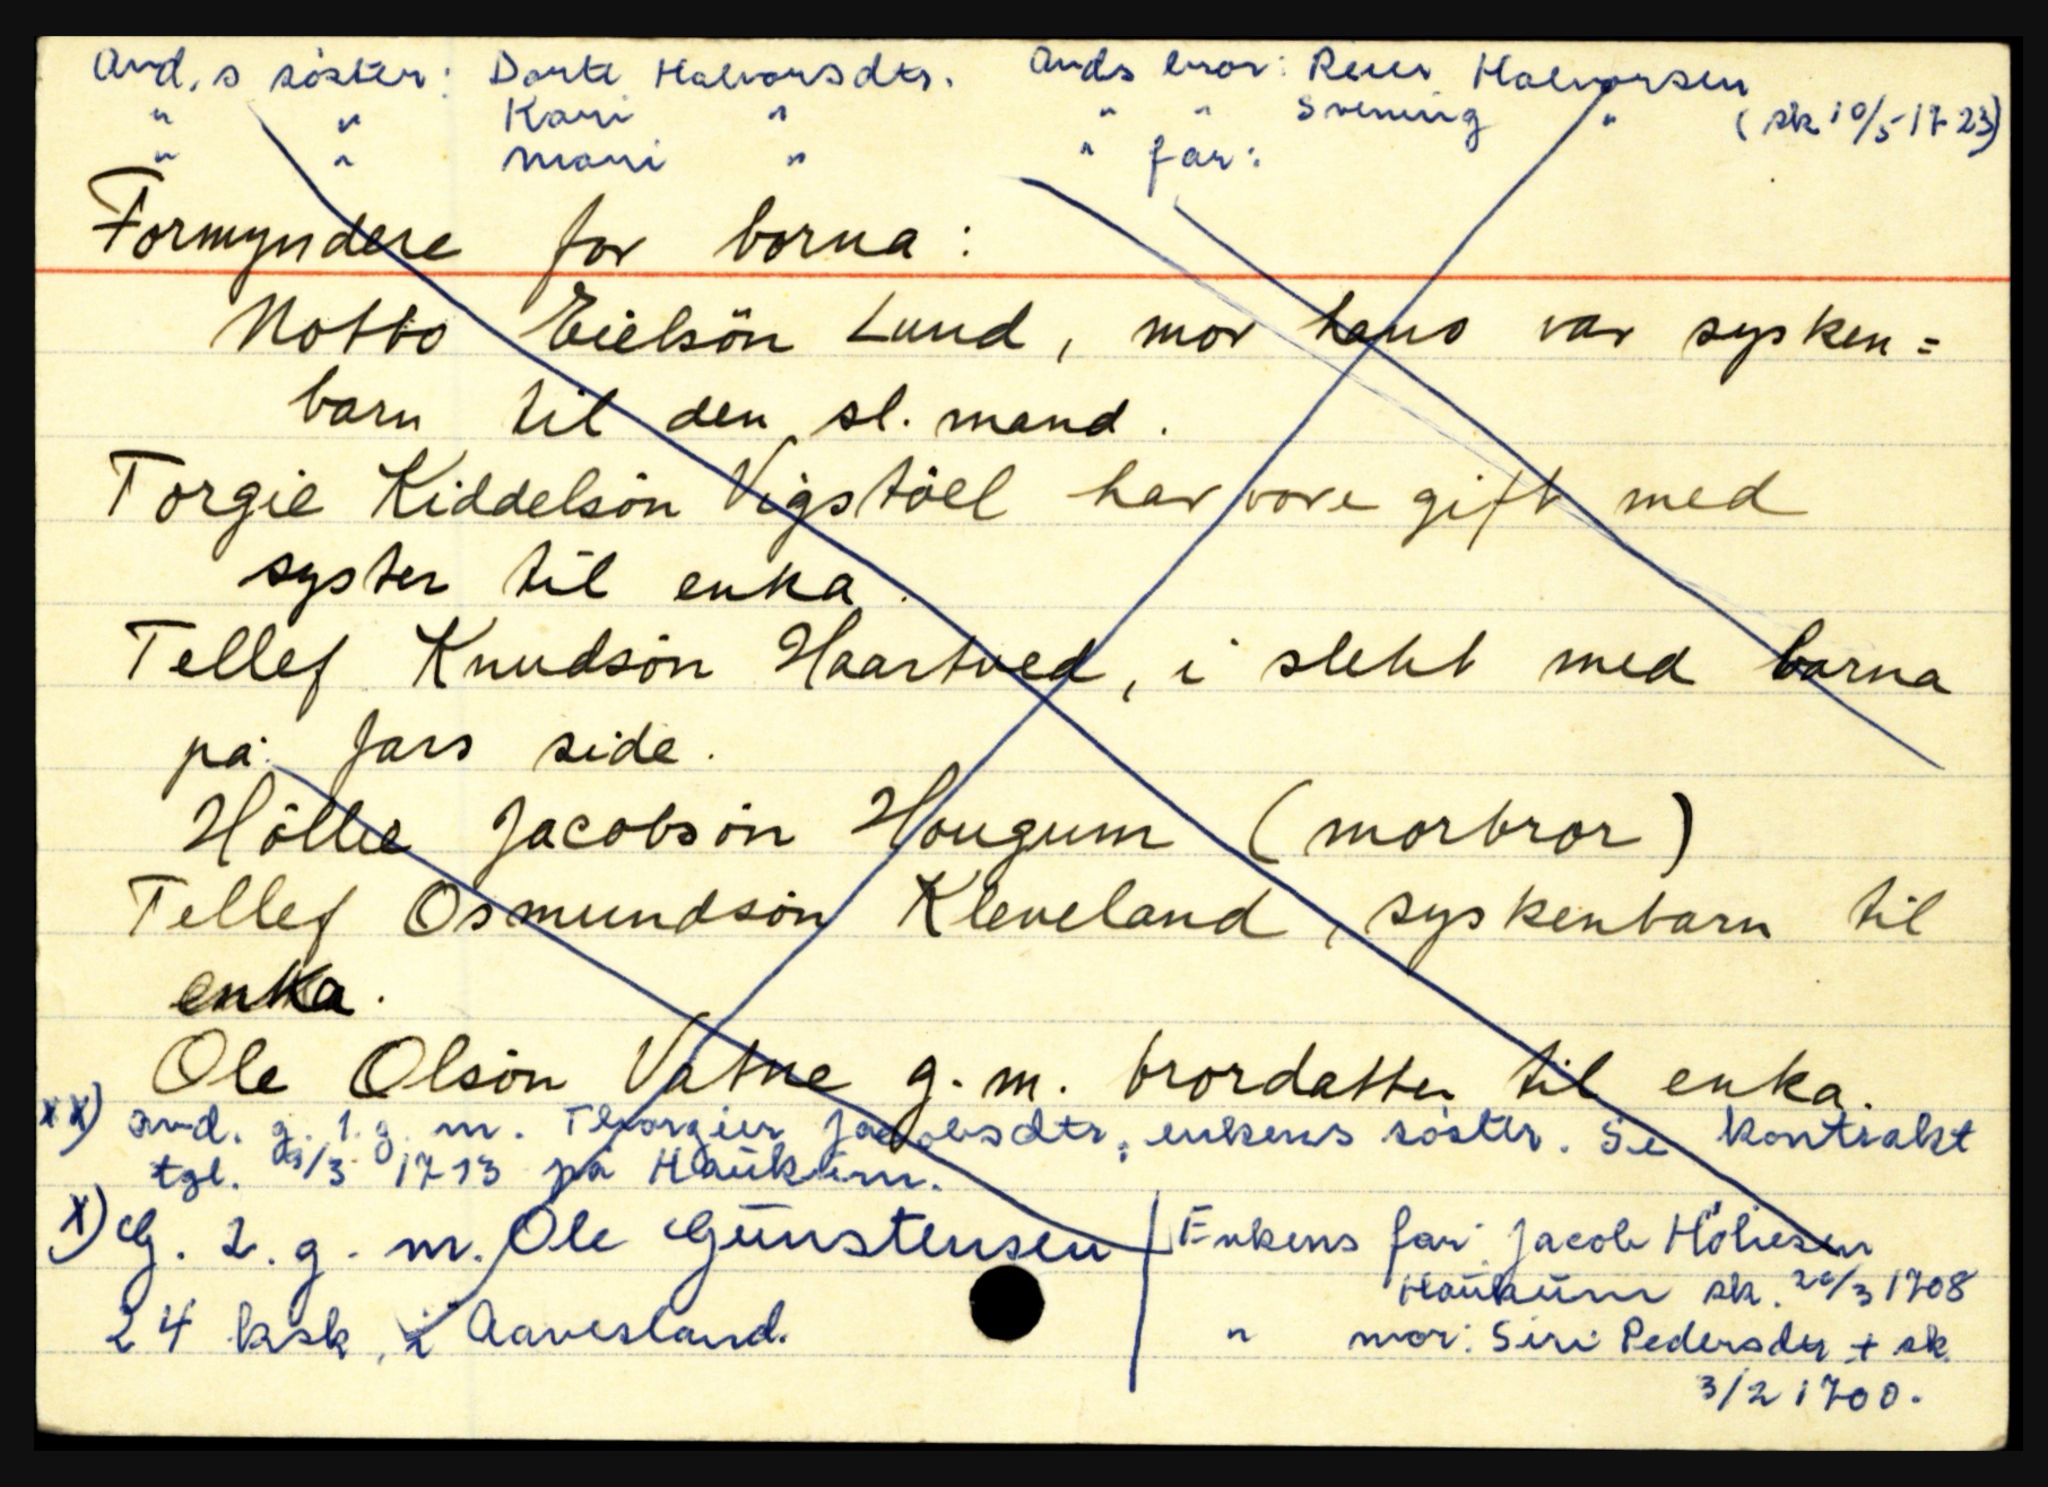 And,s søster: Dorte Halvorsdtr. Ands bror: Reier Halvorsen
" " Kari " " " Svening " (sk 10/5 1723)
" " Mari " " far:
Formyndere for borna:
Notto Eielsön Lund, mor hans var sysken=
barn til den sl. mand.
Torgie Kiddelsön Vigstöel har vore gift med
syster til enka.
Tellef Knudsön Haartved, i slekt med borna
på fars side.
Höllie Jacobsön Hougum (morbror)
Tellef Osmundsön Kleveland, syskenbarn til
enka.
Ole Olsön Vatne g.m. brordatter til enka.
xx) And. g. 1. g. m. Thorgier Jacobsdtr, enkens søster. Se kontrakt
tgl. /3 1713 på Haukum.
x) G. 2. g. m. Ole Gunstensen
24 ksk, i Aavesland.
Enkens far: Jacob Höliesen
Haukum sk. 20/3 1708
" mor: Siri Pedersdtr + sk
3/2 1700.